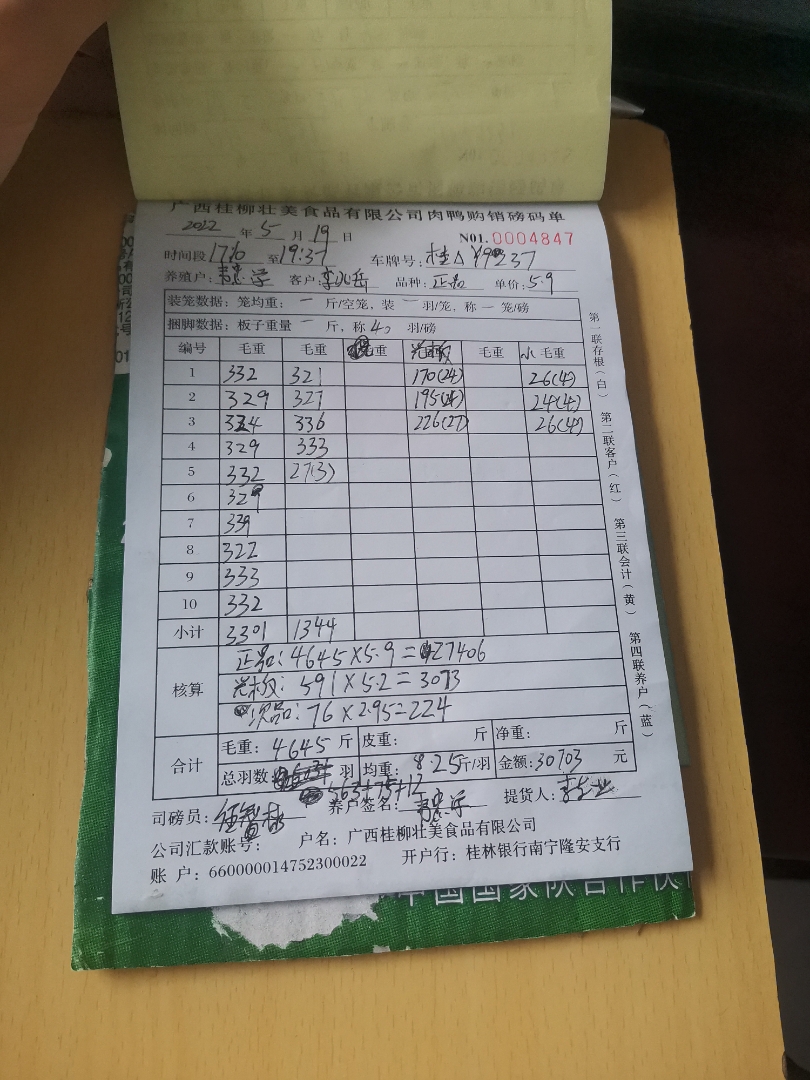 广西桂柳壮美食品有限公司肉鸭购销磅码单
2022 年 5 月 19 日 N01. 0004847
时间段 17:6 至 19:37 车牌号: 桂A
养殖户: 学 客户: 李 岳 品种: 正品 单价: 5.9
装笼数据: 笼均重: 一 斤/空笼, 装 一 羽/笼, 称 一 笼/磅
捆脚数据: 板子重量 一 斤, 称 40 羽/磅
编号 毛重 毛重 毛重 光板 毛重 小 毛重
1 332 321 170(24) 26(4)
2 329 327 195(24) 24(4)
3 324 336 226(27) 26(4)
4 329 333
5 332 27(3)
6 329
7 339
8 322
9 333
10 332
小计 3301 1344
核算
正品: 4645×5.9=27406
光板: 591×5.2=3073
次品: 76×2.95=224
合计
毛重: 4645 斤 皮重: 斤 净重: 斤
总羽数 羽 均重: 8.25 斤/羽 金额: 30703 元
563+75+12
司磅员: 养户签名: 提货人:
公司汇款账号: 户名: 广西桂柳壮美食品有限公司
账 户: 660000014752300022 开户行: 桂林银行南宁隆安支行
第一联存根(白) 第二联客户(红) 第三联会计(黄) 第四联养户(蓝)
中国国家队合作伙